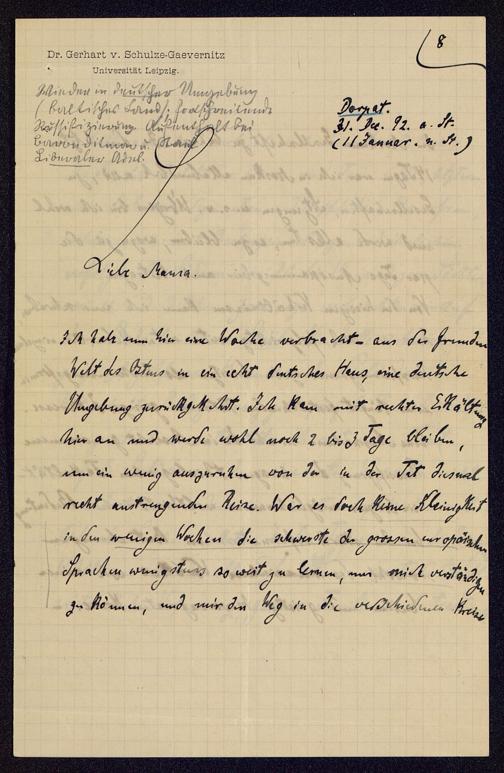 8
Dr. Gerhart v. Schulze-Gaevernitz
Universität Leipzig.
Wieder in deutscher Umgebung
(baltisches Land) fortschreitende
Russifizierung Aufenthalt bei
Baron
Liberaler Adel.
Dorpat.
31. Dec. 92. a. St.
(11 Januar. n. St.)
Liebe Mama.
Ich habe nun hier eine Woche verbracht – aus der fremden
Welt des Ostens in ein echt deutsches Haus, eine deutsche
Umgebung zurückgekehrt. Ich kam mit rechter Erkältung
hier an und werde wohl noch 2 bis 3 Tage bleiben,
um ein wenig auszuruhen von der in der Tat diesmal
recht anstrengenden Reise. War es doch keine Kleinigkeit
in den wenigen Wochen die schwerste der grossen europäischen
Sprachen wenigstens so weit zu lernen, um mich verständigen
zu können, und mir den Weg in die verschiedenen Kreise